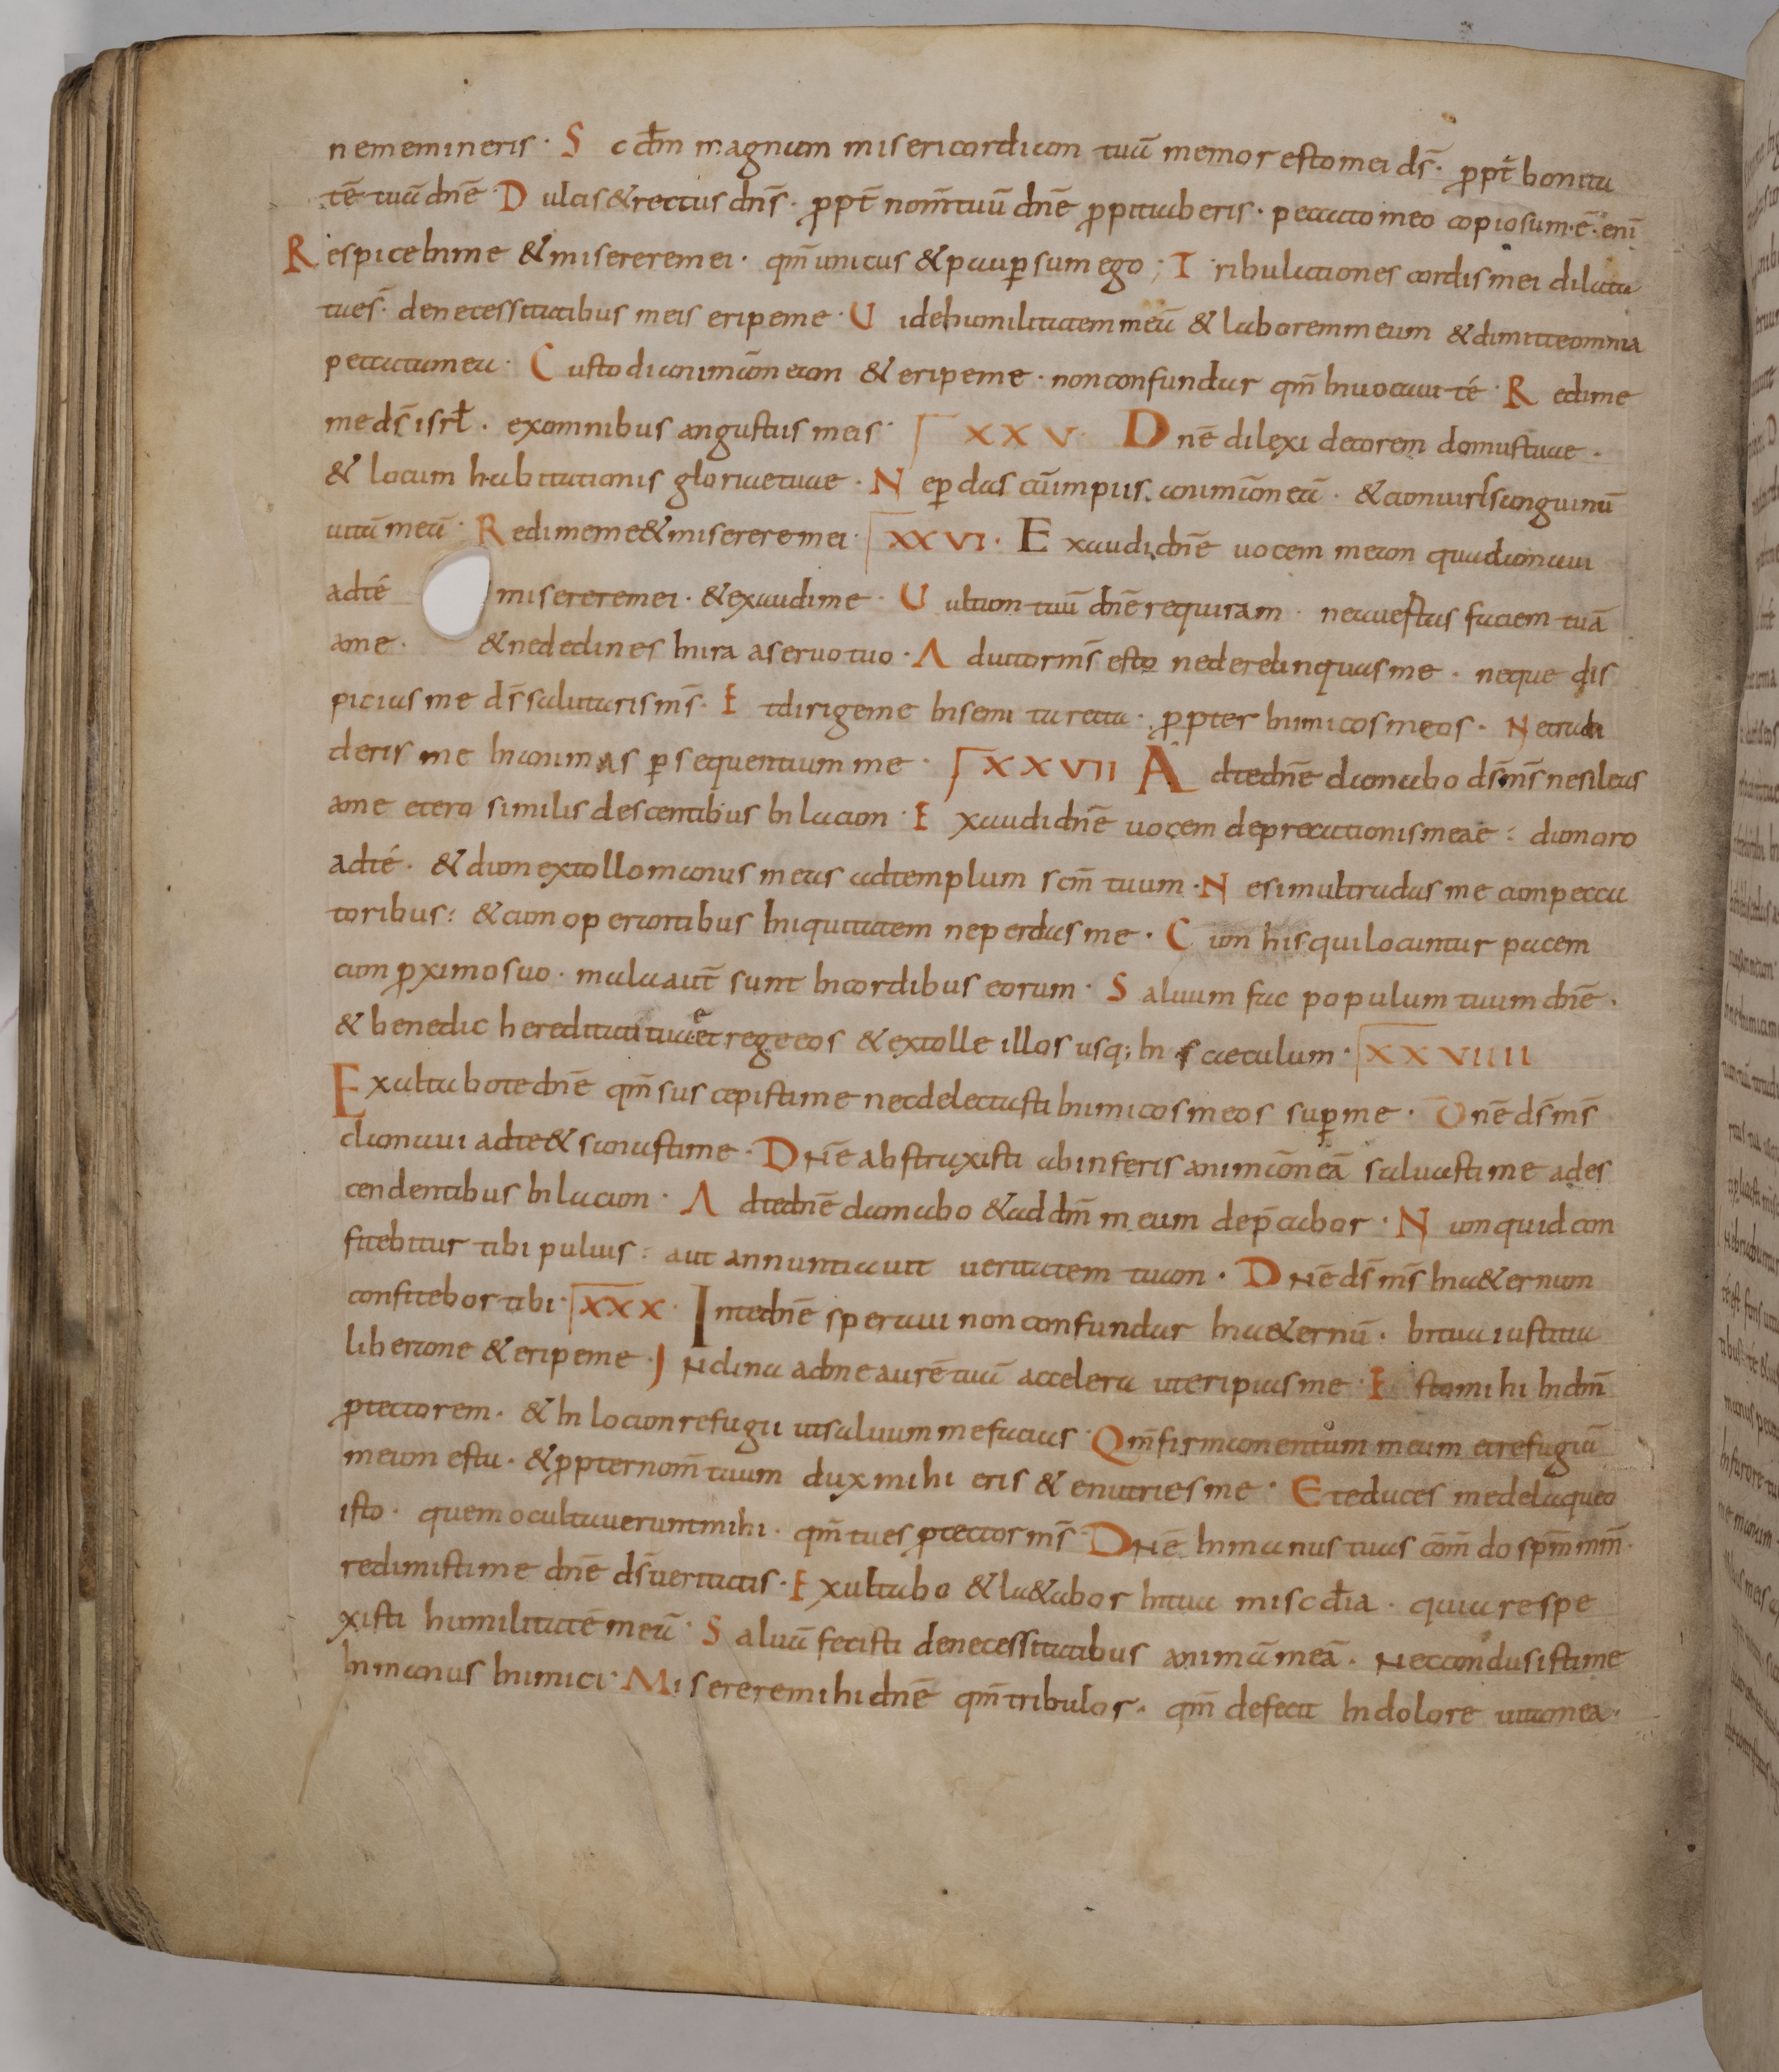 nememineris · S cdm̄ magnam misericordiam tuā memor estomei ds̄ · ꝓpt̄ bonita
tē tuā dnē · D ulcis & rectus dns̄ · ꝓpt̄ nom̄ tuū dnē ꝓpitiaberis · peccatomeo copiosum · ē · enī
R espice Inme & misereremei · qm̄ unicus & pauꝑ sum ego ; T ribulationes cordis mei dilata
tae s̄ · denecessitatibus meis eripeme · U idehumilitatem meā & laboremmeum & dimitteomnia
peccatamea · C ustodi animāmeam & eripeme · nonconfundar qm̄ Inuocaui té · R edime
me ds̄ isrł · exomnibus angustiis meis · XXV · D nē dilexi decorem domustuae ·
& locum habitationis gloriaetuae · N eꝑdas cūimpiis animāmeā · & cumuirıs̄ sanguinū
uitā meā · R edimeme & misereremei · XXVI · E xaudi dnē uocem meam quaclamaui
adté misereremei · & exaudime · U ultum tuū dnē requiram · neauertas faciem tuā
ame · & nedeclines Inira aseruo tuo · A diutor ms̄ esto nederelinquas me · neque dis
picias me ds̄ salutaris ms̄ · E tdirigeme Insemi ta recta · ꝓpter Inimicos meos · N etradi
deris me Inanimas ꝑsequentium me · XXVII A dtednē clamabo ds̄ ms̄ nesileas
ame etero similis descentibus Inlacum · E xaudi dnē uocem deprecationis meae : dumoro
adté · & dumextollo manus meas adtemplum scm̄ tuum · N esimultradas me cumpecca
toribus : & cum operantibus Iniquitatem neperdas me · C um his qui locuntur pacem
cum ꝓximosuo · mala aut̄ sunt Incordibus eorum · S aluum fac populum tuum dnē ·
& benedic hereditati tuae et rege eos & extolle illos usq; In saeculum · XXVIIII
E xaltabo te dnē qm̄ suscepistime necdelectasti Inimicos meos suꝑ me · D nē ds̄ ms̄
clamaui adte & sanastime · D nē abstraxisti abinferis animāmeā saluastime ades
cendentibus Inlacum · A dtednē clamabo & addm̄ meum dep̄cabor · N umquid con
fitebitur tibi puluis : aut annuntiauit ueritatem tuam · D nē ds̄ ms̄ Ina&ernum
confitebor tibi · XXX · I ntednē speraui non confundar Ina&ernū · Intua iustitia
liberame & eripeme · I nclina adme aurē tuā accelera uteripias me · E stomihi Indm̄
ꝓtectorem · & In locum refugii utsaluum mefacias · Qm̄ firmamentum meum etrefugiū
meum estu · & ꝓpternom̄ tuum dux mihi eris & enutries me · E teduces medelaqueo
isto · quem ocultauerunt mihi · qm̄ tues ꝓtector ms̄ · D nē Inmanus tuas cōm̄do spm̄ mm̄ ·
redimistime dnē ds̄ ueritatis · E xultabo & la&abor Intua miscđia · quia respe
xisti humilitatē meā · S aluā fecisti denecessitatibus animā meā · Necconclusistime
Inmanus Inimici · Misereremihi dnē qm̄ tribulor · qm̄ defecit Indolore uitamea ·